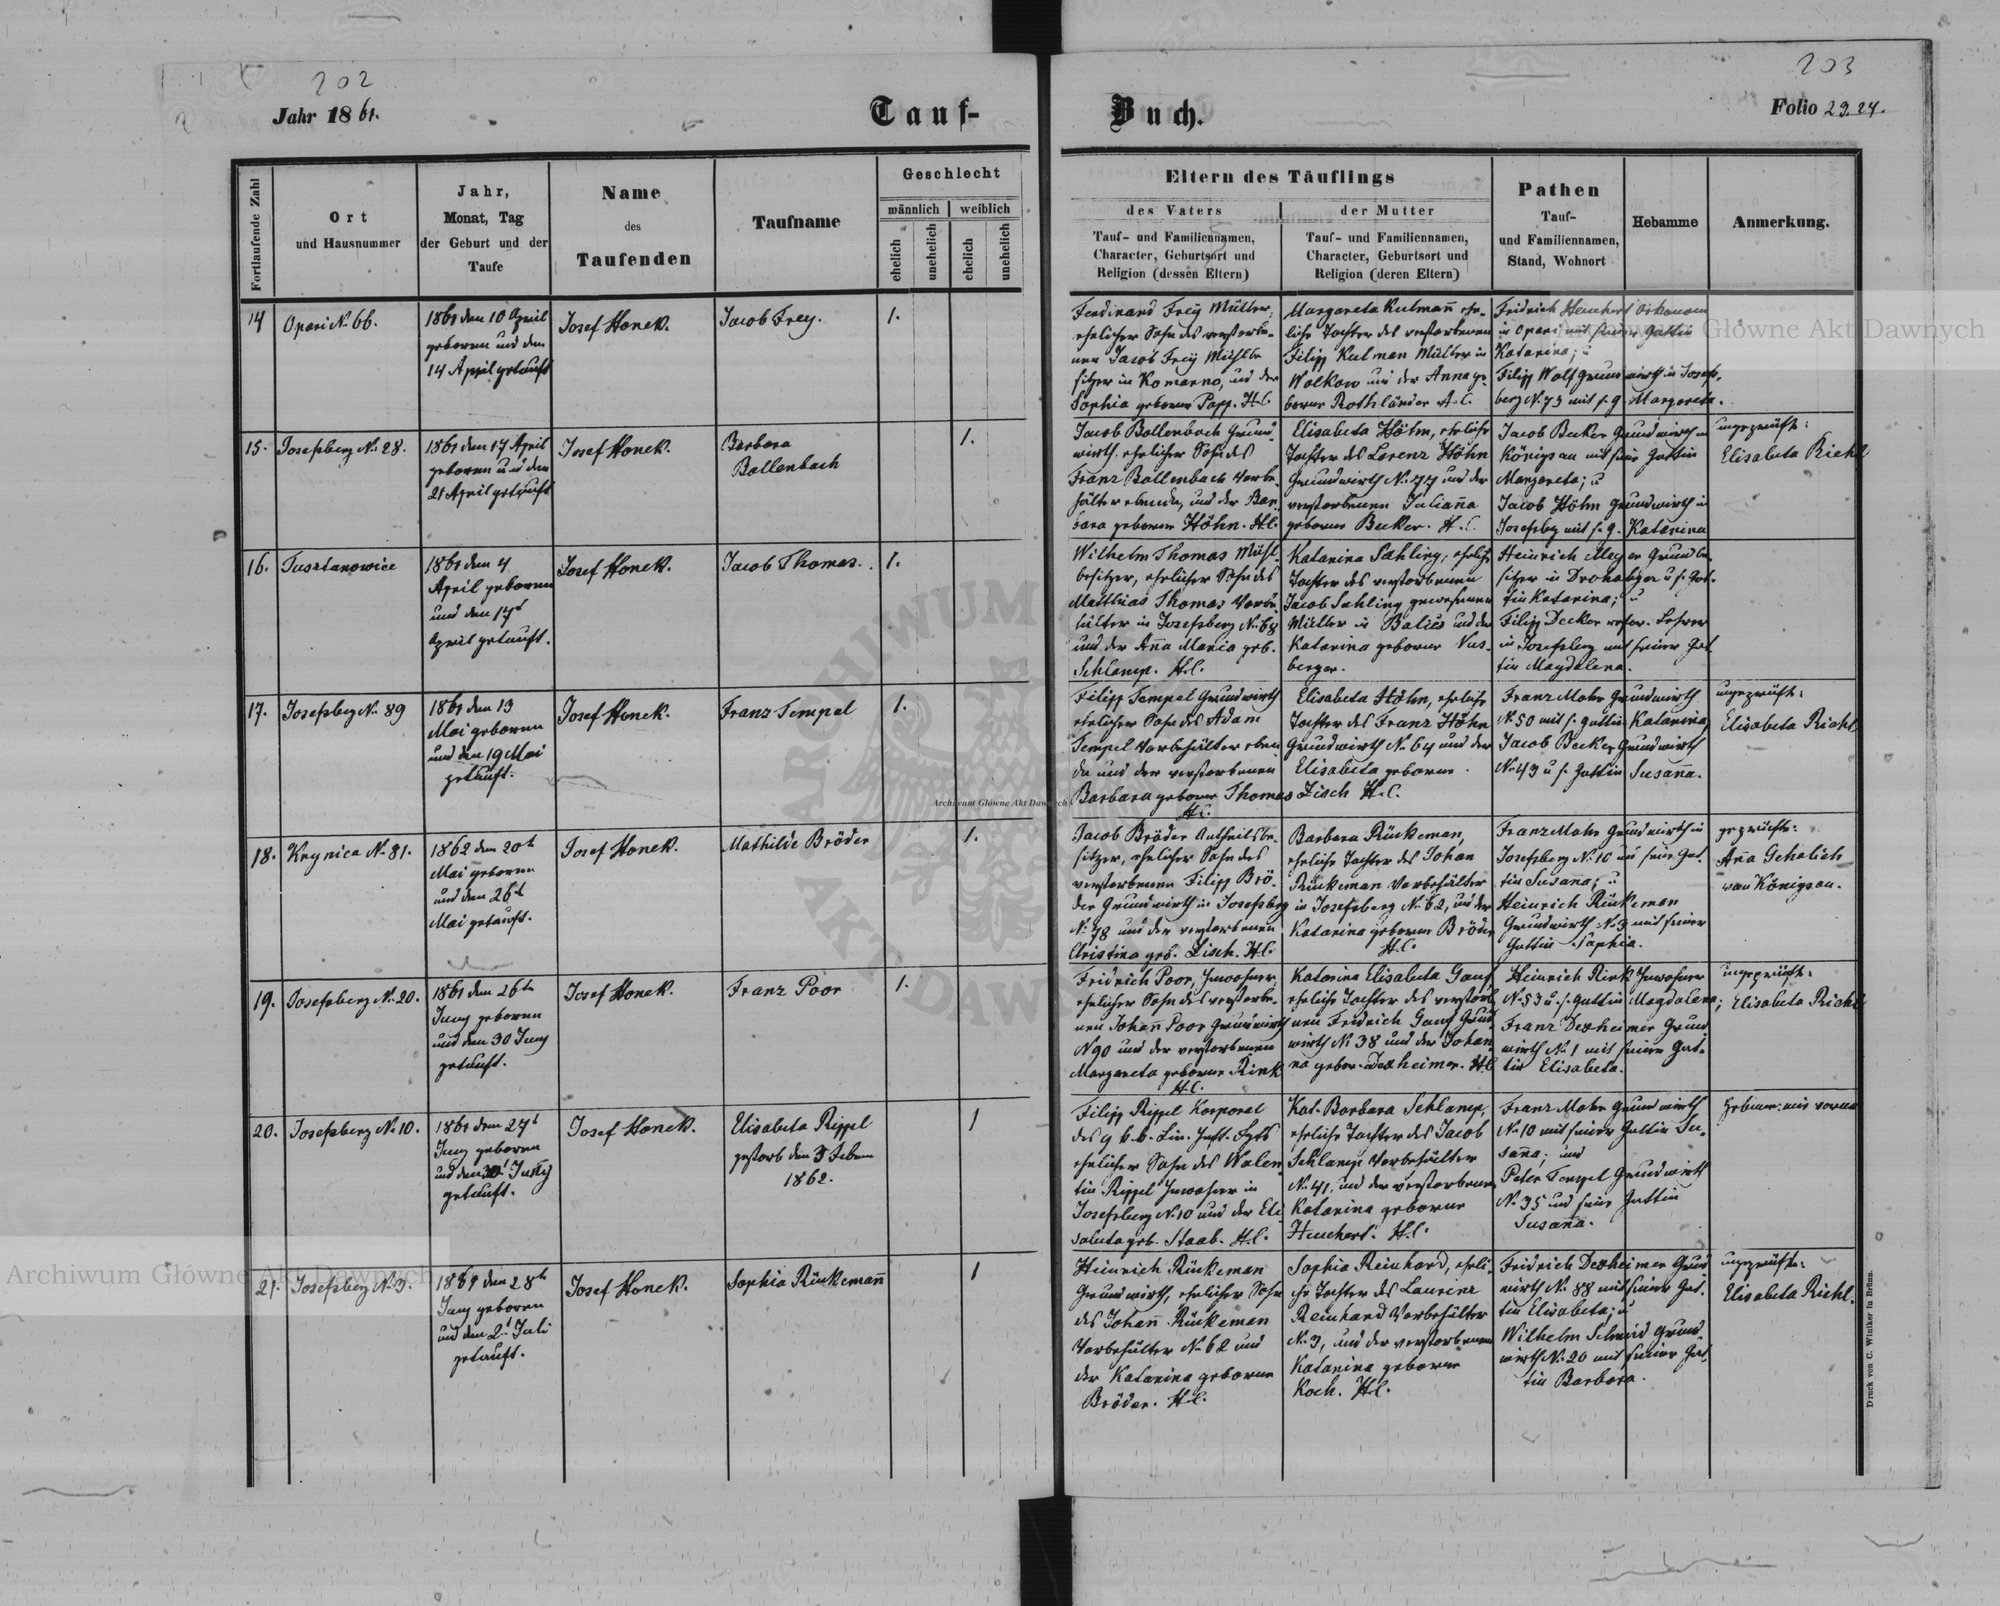 202
203
Jahr 1861.
Tauf-
Buch.
Folio 23.24.
Fortlaufende Zahl
Ort
und Hausnummer
Jahr,
Monat, Tag
der Geburt und der
Taufe
Name
des
Taufenden
Taufname
Geschlecht
männlich
weiblich
ehelich
unehelich
ehelich
unehelich
Eltern des Täuflings
des Vaters
Tauf- und Familiennamen,
Character, Geburtsort und
Religion (dessen Eltern)
der Mutter
Tauf- und Familiennamen,
Character, Geburtsort und
Religion (deren Eltern)
Pathen
Tauf-
und Familiennamen,
Stand, Wohnort
Hebamme
Anmerkung.
14
Opari No 66.
1861 den 10 April
geboren und den
14 April getauft
Josef Honek.
Jacob Frey.
1.
Ferdinand Frey Müller,
ehelicher Sohn des verstorbe-
nen Jacob Frey Mühlbe
sitzer in Komarno, und der
Sophia geborne Popp. H.C.
Margareta Kulmañ ehe-
liche Tochter des verstorbenen
Filipp Kulman Müller in
Wolkow und der Anna ge-
borne Rothländer A.C.
Fridrich Heuchert Oekonom
in Opari mit seiner Gattin
Katarina; u
Filipp Wolf Grundwirth in Josefs-
berg No 73 mit s. g. Margareta.
15.
Josefsberg No 28.
1861 den 17 April
geboren und den
21 April getauft
Josef Honek.
Barbara
Bollenbach
1.
Jacob Bollenbach Grund-
wirth, ehelicher Sohn des
Franz Bollenbach Vorbe-
hälter ebenda, und der Bar-
bara geborne Höhn. H.C.
Elisabeta Höhn, eheliche
Tochter des Lorenz Höhn
Grundwirth No 77 und der
verstorbenen Juliaña
geborne Becker. H.C.
Jacob Becker Grundwirth in
Königsau mit seine Gattin
Margareta; u
Jacob Höhn Grundwirth in
Josefsbg mit s. g. Katarina
ungeprüfte:
Elisabeta Riehl
16.
Tustanowice
1861 den 4
April geboren
und den 14t
April getauft.
Josef Honek.
Jacob Thomas.
1.
Wilhelm Thomas Mühl-
besitzer, ehelicher Sohn des
Matthias Thomas Vorbe-
hälter in Josefsberg No 68
und der Aña Maria geb.
Schlamp. H.C.
Katarina Sahling, eheliche
Tochter des verstorbenen
Jacob Sahling gewesenen
Müller in Balics und der
Katarina geborne Nus-
berger.
Heinrich Meyer Grundbe-
sitzer in Drohobycz u s. Gat-
tin Katarina; u
Filipp Decker refor. Lehrer
in Josefsberg mit seiner Gat
tin Magdalena.
17.
Josefsberg No 89
1861 den 13
Mai geboren
und den 19 Mai
getauft.
Josef Honek.
Franz Tempel
1.
Filipp Tempel Grundwirth
ehelicher Sohn des Adam
Tempel Vorbehälter eben
da und der verstorbenen
Barbara geborne Thomas
H.C.
Elisabeta Höhn, eheliche
Tochter des Franz Höhn
Grundwirth No 64 und der
Elisabeta geborne
Zisch H.C.
Franz Mohr Grundwirth
No 50 mit s. Gattin Katarina,
Jacob Becker Grundwirth
No 43 u s. Gattin Susaña.
ungeprüfte:
Elisabeta Riehl
18.
Krynica No 81.
1862 den 20t
Mai geboren
und den 26t
Mai getauft.
Josef Honek.
Mathilde Bröder
1.
Jacob Bröder Antheilsbe-
sitzer, ehelicher Sohn des
verstorbenen Filipp Brö-
der Grundwirth in Josefsberg
No 78 und der verstorbenen
Christina geb. Zisch. H.C.
Barbara Rückeman,
eheliche Tochter des Johan
Rückeman Vorbehälter
in Josefsberg No 62, und der
Katarina geborne Bröder
H.C.
Franz Mohr Grundwirth in
Josefsberg No 10 und seine Gat-
tin Susaña; u
Heinrich Rückeman
Grundwirth No 3 mit seiner
Gattin Sophia.
geprüfte:
Aña
von Königsau.
19.
Josefsberg No 20.
1861 den 26tn
Juny geboren
und den 30 Juny
getauft.
Josef Honek.
Franz Poor
1.
Fridrich Poor, Inwohner,
ehelicher Sohn des verstorbe-
nen Johañ Poor Grundwirth
No 90 und der verstorbenen
Margareta geborne Rink
H.C.
Katarina Elisabeta Gans,
eheliche Tochter des verstorbe
nen Fridrich Gans Grund-
wirth No 38 und der Johan
na gebor. Dexheimer. H.C.
Heinrich Rink Inwohner
No 53 u s. Gattin Magdalena;
Franz Dexheimer Grund
wirth No 1 mit seiner Gat-
tin Elisabeta.
ungeprüfte:
Elisabeta Riehl
20.
Josefsberg No 10.
1861 den 27t
Juny geboren
und den 30t Juny
getauft.
Josef Honek.
Elisabeta Rippel
gestorb den 3 Febr
1862.
1
Filipp Rippel Korporal
des 9 k.k. Lin. Inft. Rgts
ehelicher Sohn des Valen
tin Rippel Inwohner in
Josefsberg No 10 und der Eli
sabeta geb. Staab. H.C.
Kat. Barbara Schlamp,
eheliche Tochter des Jacob
Schlamp Vorbehälter
No 41, und der verstorbenen
Katarina geborne
Heuchert. H.C.
Franz Mohr Grundwirth
No 10 mit seiner Gattin Su-
saña; und
Peter Tempel Grundwirth
No 35 und seine Gattin
Susaña.
Hebame: wie voran
21.
Josefsberg No 3.
1861 den 28tn
Juny geboren
und den 2t Juli
getauft.
Josef Honek.
Sophia Rückemañ
1
Heinrich Rückeman
Grundwirth, ehelicher Sohn
des Johañ Rückeman
Vorbehälter No 62 und
der Katarina geborne
Bröder. H.C.
Sophia Reinhard, eheli-
che Tochter des Laurenz
Reinhard Vorbehälter
No 3, und der verstorbenen
Katarina geborne
Koch. H.C.
Fridrich Dexheimer Grund
wirth No 88 mit seiner Gat-
tin Elisabeta; u
Wilhelm Schmid Grund-
wirth No 20 mit seiner Gat-
tin Barbara.
ungeprüfte:
Elisabeta Riehl.
Druck von C. Winiker in Brünn.
Archiwum Główne Akt Dawnych
Archiwum Główne Akt Dawnych
Archiwum Główne Akt Dawnych
ARCHIWUM
AKT DAW